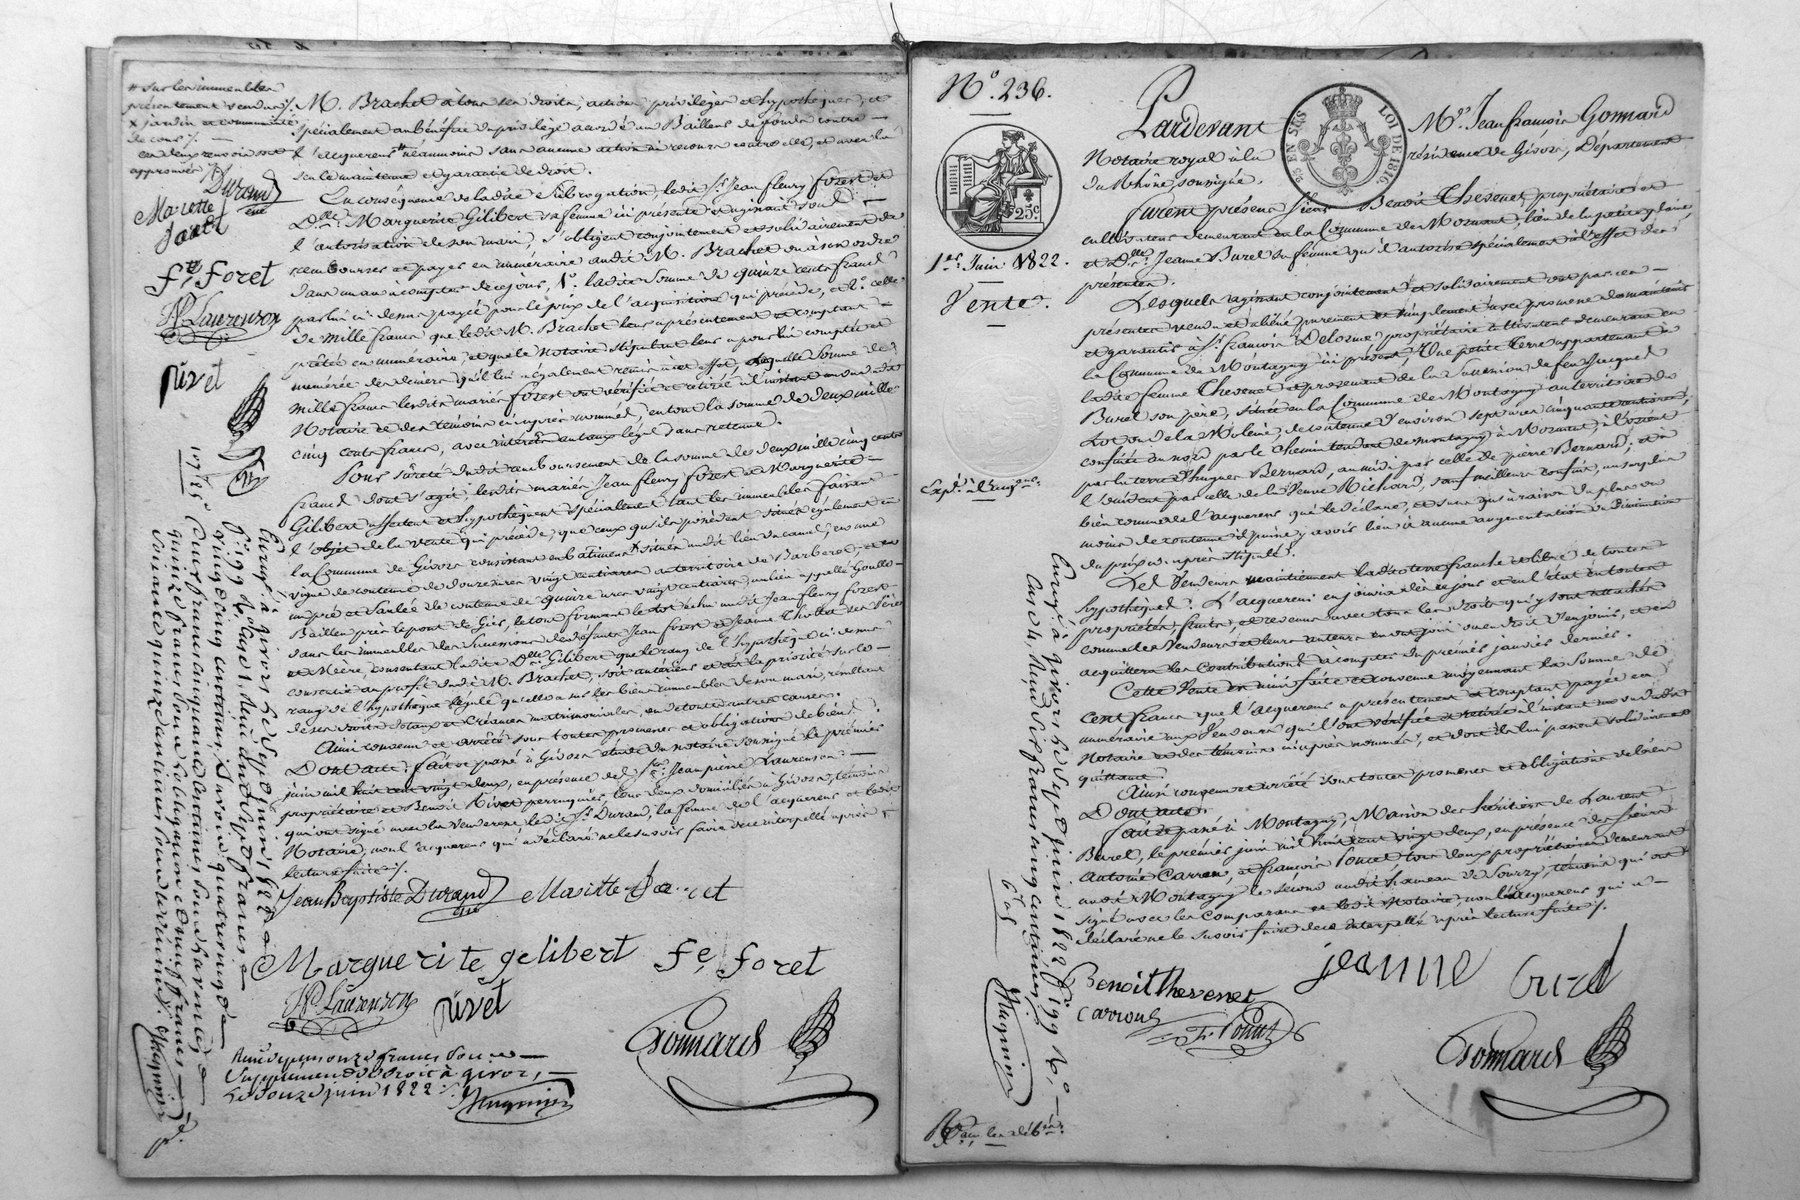 # sur les immeubles
présentement vendus /.
x jardin et communauté
de cour /.
approuvés /.
Durand
Mariette
fe, foret
JP Laurenson
Rivet
M. Brachet à tous ses droits, actions, privilèges et hypothèques, et
spécialement au bénéfice du privilège accordé au Bailleur de fonds contre
l'acquereur # néanmoins sans aucune action de recours contre elle, et avec la
seule maintenue et garantie de droit.
En conséquence de ladite subrogation, ledit Sr. Jean fleury forest et
Dlle. Marguerite Gilibert sa femme ici présente et agissant sous
l'autorisation de son mari, s'obligent conjointement et solidairement de
rembourser et payer en numéraire audit M. Brachet ou à son ordre
dans un an à compter de ce jour, 1°. ladite somme de quinze cents francs
par lui ci-dessus payée pour le prix de l'acquisition qui précède, et 2°. celle
de mille francs que ledit M. Brachet leur a présentement et comptant
prêtée en numéraire et que le Notaire stipulant leur a pour lui comptée et
numérée des deniers qu'il lui a également remis à cet effet, laquelle somme de
mille francs lesdits mariés forest ont vérifiée et retirée à l'instant au vu dudit
Notaire et des témoins ci-après nommés, en tout la somme de deux mille
cinq cents francs, avec intérêts au taux légal sans retenue.
Pour sûreté dudit remboursement de la somme de deux mille cinq cents
francs dont s'agit, lesdits mariés Jean fleury forest et Marguerite
Gilibert affectent et hypothèquent spécialement tant les immeubles faisant
l'objet de la vente qui précède, que ceux qu'ils possèdent situés également en
la Commune de Givors consistant en bâtiment x situés audit lieu du canal, en une
vigne de contenue de douze ares vingt centiares au territoire de Barberet, et en
un pré et saulée de contenue de quinze ares vingt centiares, au lieu appellé Goulle
Baillen près le pont de Gier, le tout formant le lot échu audit Jean fleury forest
dans les immeubles des successions de défunts Jean forest et Jeanne Chollet ses Père
et Mère, consentant ladite Dlle. Gilibert que le rang de l'hypothèque ci-dessus
constituée au profit dudit M. Brachet, soit antérieur et ait la priorité sur le
rang de l'hypothèque légale qu'elle a sur les biens immeubles de son mari, résultant
de ses droits dotaux et créances matrimoniales, ou de toute autre cause.
Ainsi convenu et arrêté sous toutes promesses et obligations de biens
Dont acte, fait et passé à Givors étude du notaire soussigné le premier
juin mil huit cent vingt deux, en présence des Srs. Jean pierre Laurenson
propriétaire et Benoit Rivet perruquier, tous deux domiciliés à Givors, témoins
qui ont signé avec la venderesse, ledit Sr. Durand, la femme de l'acquereur et ledit
Notaire, non l'acquereur qui a déclaré ne le savoir faire de ce interpellé après
lecture faite /.
Jean Baptiste Durand
Marguerite gelibert
fe, foret
JP Laurenson
Rivet
Gonnard
Enreg.é à givors le Sept juin 1822
f°. 199
le douze juin 1822
N°. 236.
25c
1er. Juin 1822.
Vente.
LOI DE 1816
Pardevant Me. Jean françois Gonnard
Notaire royal à la résidence de Givors, Département
du Rhône, soussigné.
furent présens Sieur Benoit Thevenet propriétaire et
cultivateur demeurant en la Commune de Mornant, lieu de la petite plaine,
et Dlle. Jeanne Burel sa femme qu'il autorise spécialement à l'effet des
présentes.
Lesquels agissant conjointement et solidairement ont par ces
présentes vendu et aliéné purement et simplement avec promesse de maintenir
et garantir à Sr. françois Delorme, propriétaire cultivateur demeurant en
la Commune de Montagny ici présent, Une petite terre appartenant à
ladite femme Thevenet et provenant de la succession de feu Jacques
Burel son père, située en la Commune de Montagny au territoire du
confinée au nord par le chemin tendant de montagny à Mornant, à l'orient
par la terre d'hugues Bernard, au midi par celle de pierre Bernard, et à
l'occident par celle de la Veuve Richard, sauf meilleurs confins, ainsi que
bien connue de l'acquereur qui le déclare, et sans qu'à raison du plus ou
moins de contenue il puisse y avoir lieu à aucune augmentation ou diminution
du prix ci-après stipulé.
Les Vendeurs maintiennent ladite terre franche et libre de toutes
hypothèques. L'acquereur en jouira dès ce jour et en l'état en toutes
propriétés, fruits, et revenus avec tous les droits qui y sont attachés
comme les Vendeurs et leurs auteurs en ont joui ou en droit d'en jouir, et en
acquittera les contributions à compter du premier janvier dernier.
Cette Vente est ainsi faite et convenue moyennant la somme de
cent francs que l'acquereur a présentement et comptant payée en
numéraire aux Vendeurs qui l'ont vérifiée et retirée à l'instant au vu dudit
Notaire et des témoins ci-après nommés, et dont ils lui passent solidairement
quittance.
Ainsi convenu et arrêté sous toutes promesses et obligations de biens
Dont acte.
fait et passé à Montagny, Maison des héritiers de Laurent
Burel, le premier juin mil huit cent vingt deux, en présence des sieurs
Antoine Carron, et françois Poncet tous deux propriétaires demeurant
audit Montagny le second audit hameau de Sourzy, témoins qui ont
signé avec les Comparans et ledit Notaire, non l'acquereur qui a
déclaré ne le savoir faire de ce interpellé après lecture faite /.
Benoit thevenet
jeanne burel
carron
Gonnard
Enreg.é à Givors le Sept juin 1822 f°. 199 V°.